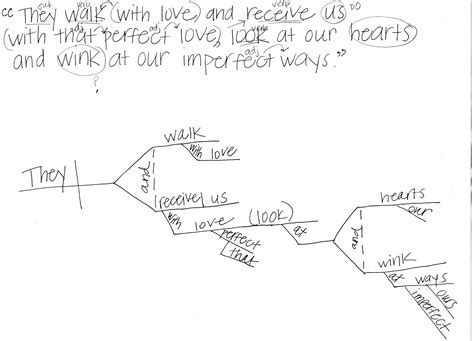 “They walk (with love) and receive us DO
sub. verb verb
(with that perfect love), look at our hearts
adj adj verb
and wink at our imperfect ways.”
adj
?
walk
with love
They
and
receive us
with love (look)
perfect
that
at
hearts
our
and
wink
at ways
ours
imperfect